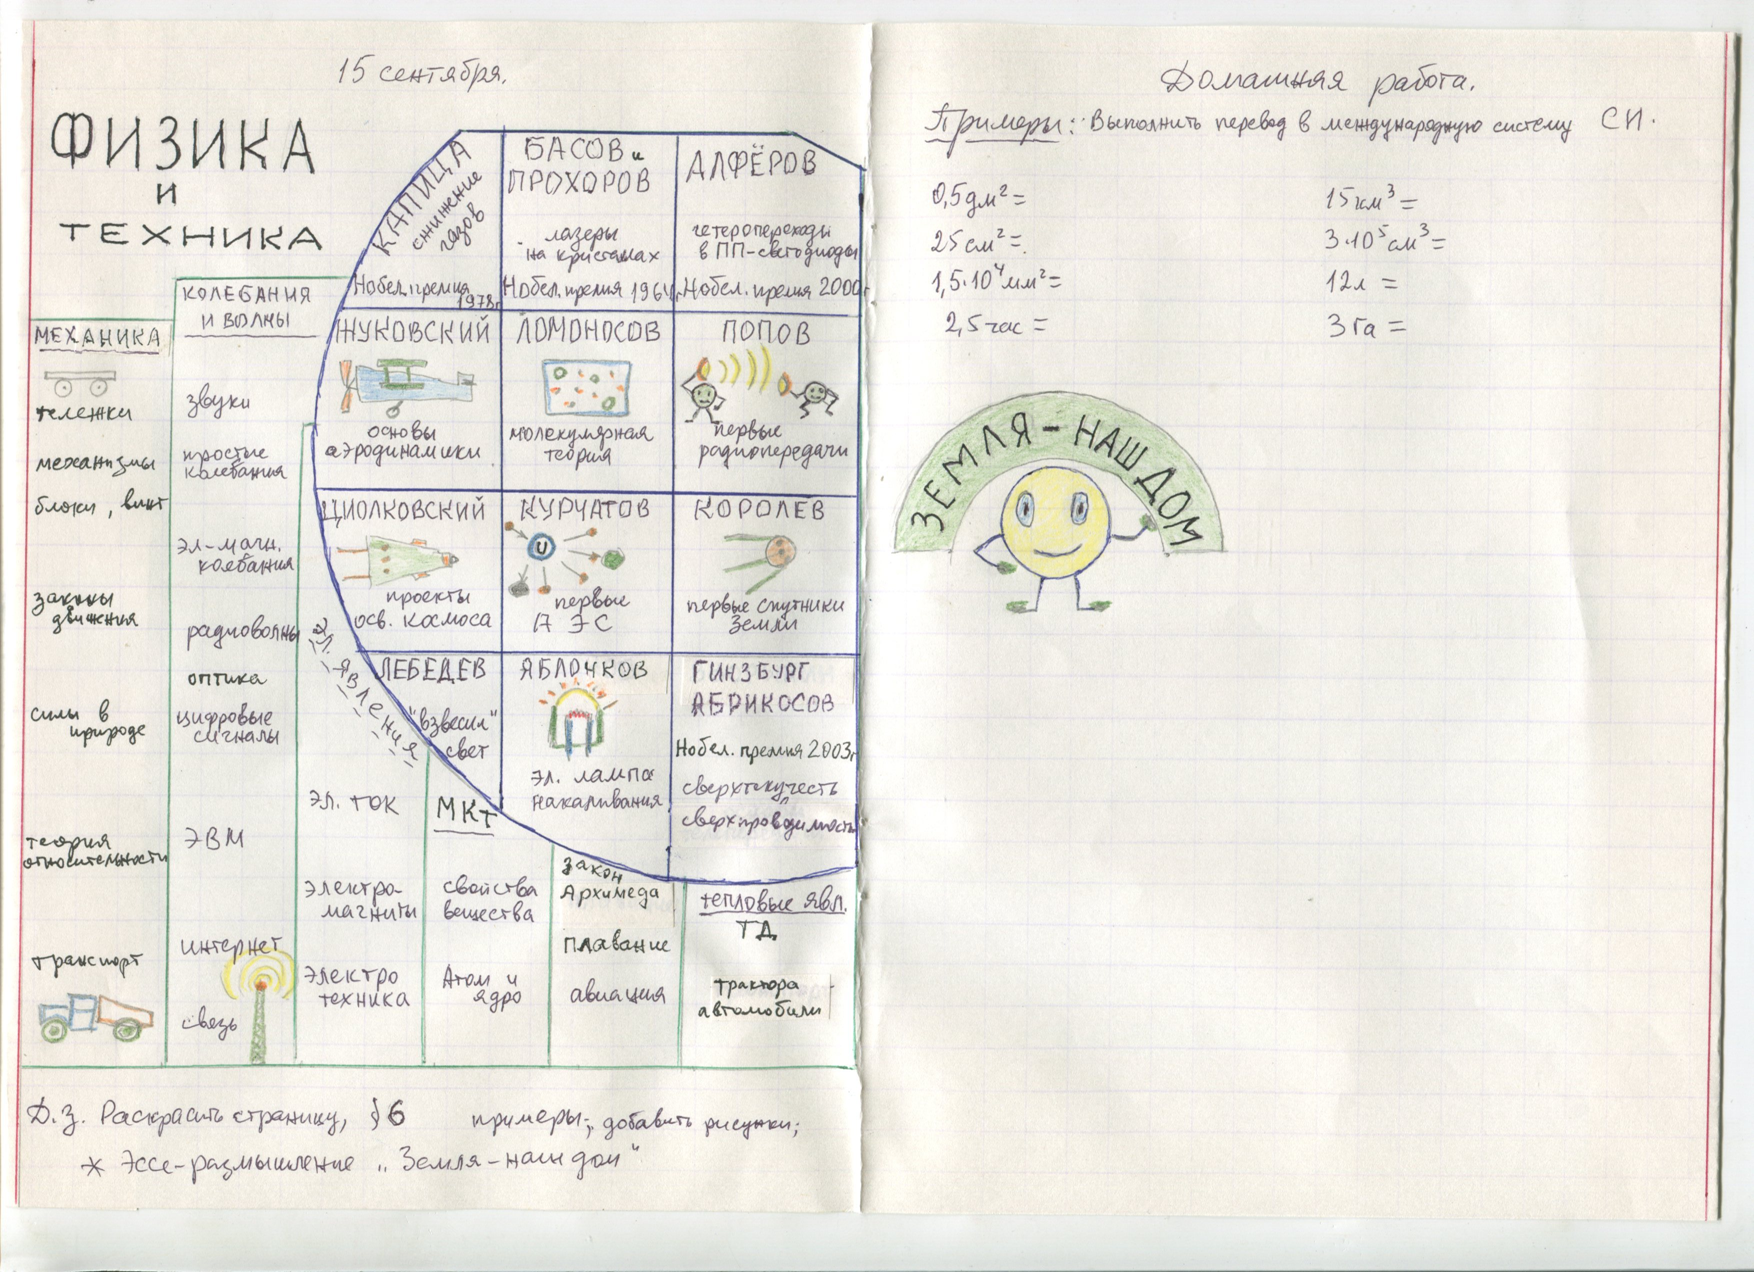 15 сентября.
ФИЗИКА
и
ТЕХНИКА
КАПИЦА
сжижение
газов
Нобел. премия
1978г.
БАСОВ и
ПРОХОРОВ
лазеры
на кристаллах
Нобел. премия 1964г.
АЛФЁРОВ
гетеропереходы
в ПП-светодиоды
Нобел. премия 2000г
ЖУКОВСКИЙ
основы
аэродинамики
ЛОМОНОСОВ
молекулярная
теория
ПОПОВ
первые
радиопередачи
ЦИОЛКОВСКИЙ
проекты
осв. космоса
КУРЧАТОВ
U
первые
АЭС
КОРОЛЁВ
первые спутники
Земли
ЛЕБЕДЕВ
"взвесил"
свет
ЯБЛОЧКОВ
эл. лампа
накаливания
ГИНЗБУРГ
АБРИКОСОВ
Нобел. премия 2003г
сверхтекучесть
сверхпроводимость
МЕХАНИКА
тележки
механизмы
блоки, винт
законы
движения
силы в
природе
теория
относительности
транспорт
КОЛЕБАНИЯ
И ВОЛНЫ
звуки
простые
колебания
эл-магн.
колебания
радиоволны
оптика
цифровые
сигналы
ЭВМ
интернет
связь
эл. явления
эл. ток
электро-
магниты
электро
техника
МКТ
свойства
вещества
Атом и
ядро
закон
Архимеда
плавание
авиация
тепловые явл.
ТД
трактора
автомобили
Д.з. Раскрасить страницу, §6 примеры; добавить рисунки;
* Эссе-размышление „Земля-наш дом"
Домашняя работа.
Примеры: Выполнить перевод в международную систему СИ.
0,5дм²=
25см²=
1,5·10⁴мм²=
2,5час =
15км³=
3·10⁵см³=
12л =
3Га =
ЗЕМЛЯ-НАШ ДОМ